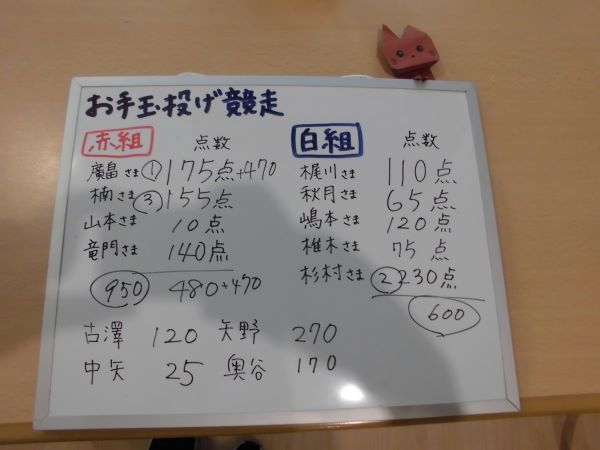 お手玉投げ競走
赤組 点数
廣畠さま ① 175点+470
楠さま ③ 155点
山本さま 10点
竜門さま 140点
950 480+470
白組 点数
梶川さま 110点
秋月さま 65点
嶋本さま 120点
椎木さま 75点
杉村さま ② 230点
600
古澤 120 矢野 270
中矢 25 奥谷 170